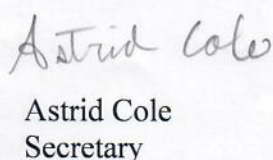 Astrid Cole
Astrid Cole
Secretary